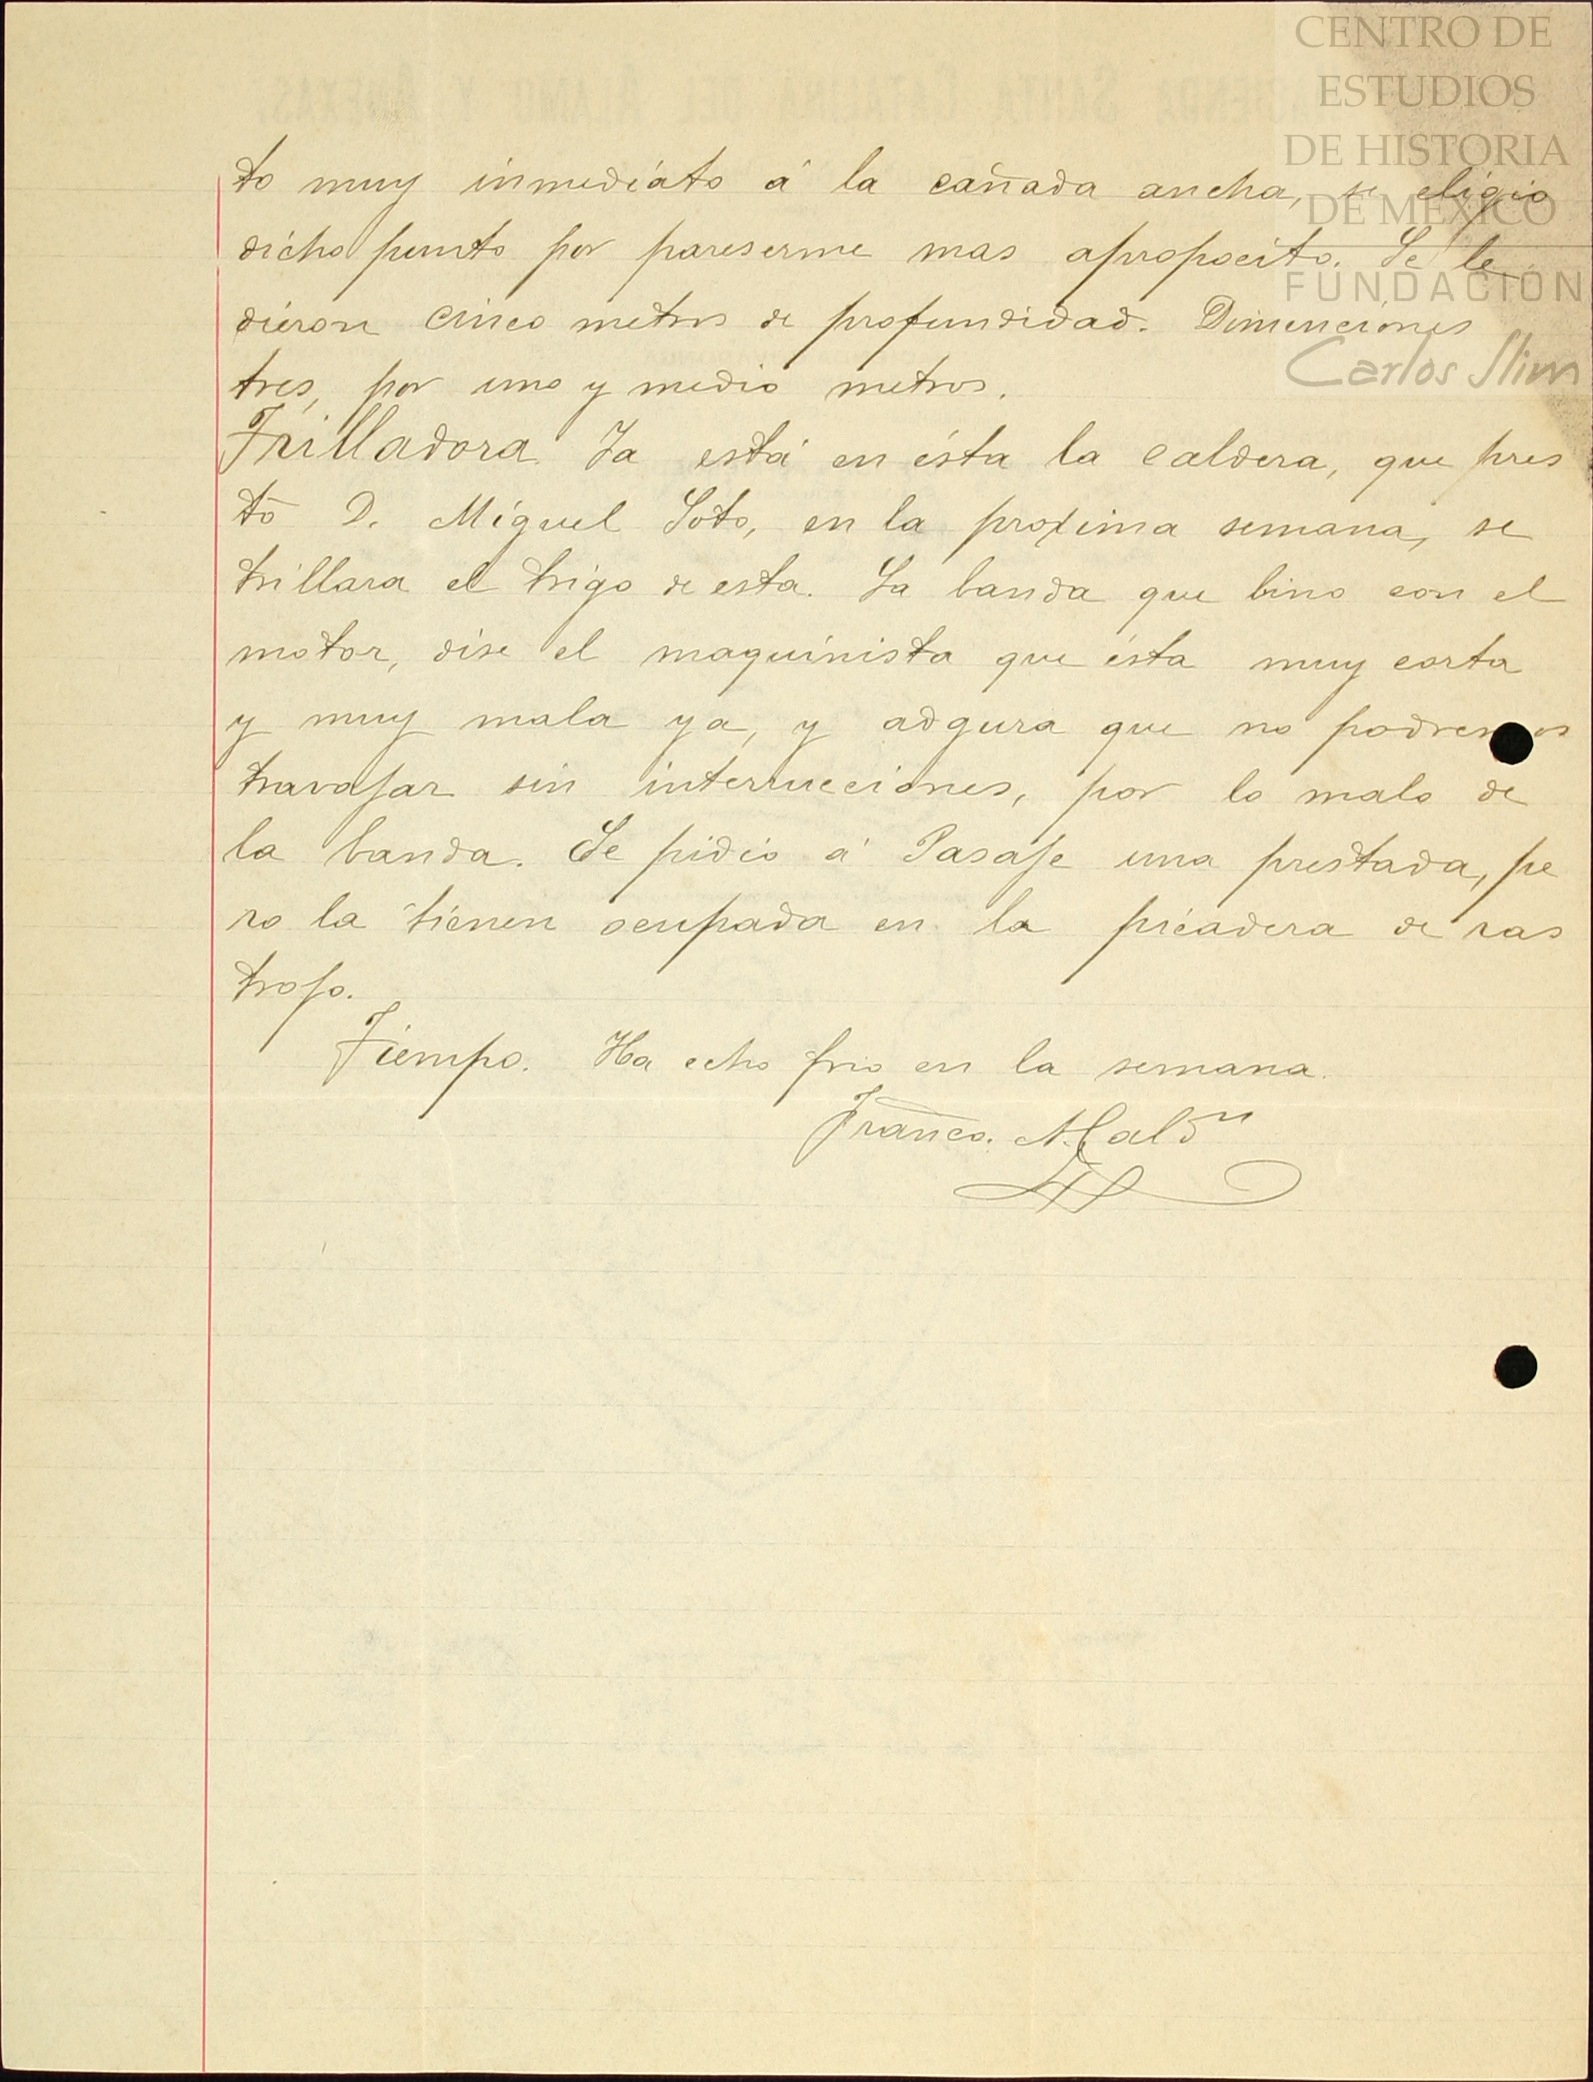 CENTRO DE
ESTUDIOS
DE HISTORIA
DE MÉXICO
FUNDACIÓN
Carlos Slim
to muy inmediáto á la cañada ancha, se eligio
dicho punto por pareserme mas apropocito. Se le
dieron cinco metros de profundidad. Dimenciónes
tres, por uno y medio metros.
Trilladora. Ya está en ésta la caldera, que pres
tó D. Miguel Soto, en la proxima semana, se
trillara el trigo de esta. La banda que bino con el
motor, dise el maquinista que ésta muy corta
y muy mala ya, y adgura que no podremos
travajar sin interrucciones, por lo malo de
la banda. Se pidió á Pasaje una prestada, pe
ro la tienen ocupada en la picadera de ras
trojo.
Tiempo. Ha echo frio en la semana.
Franco. Maldn